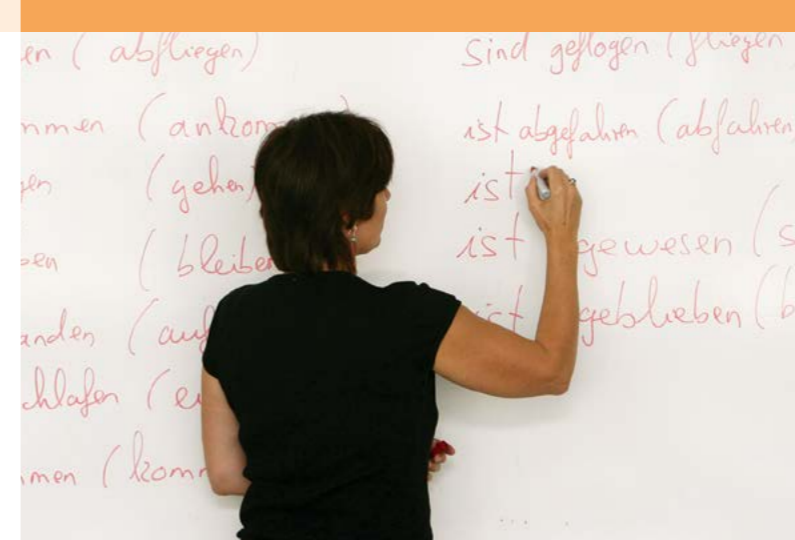 en (abfliegen)
mmen (ankom
en (gehen)
ben (bleiben
anden (auf
chlafen (ei
mmen (komm
Sind geflogen (fliegen
ist abgefahren (abfahren
ist
ist gewesen (s
ist geblieben (b
...